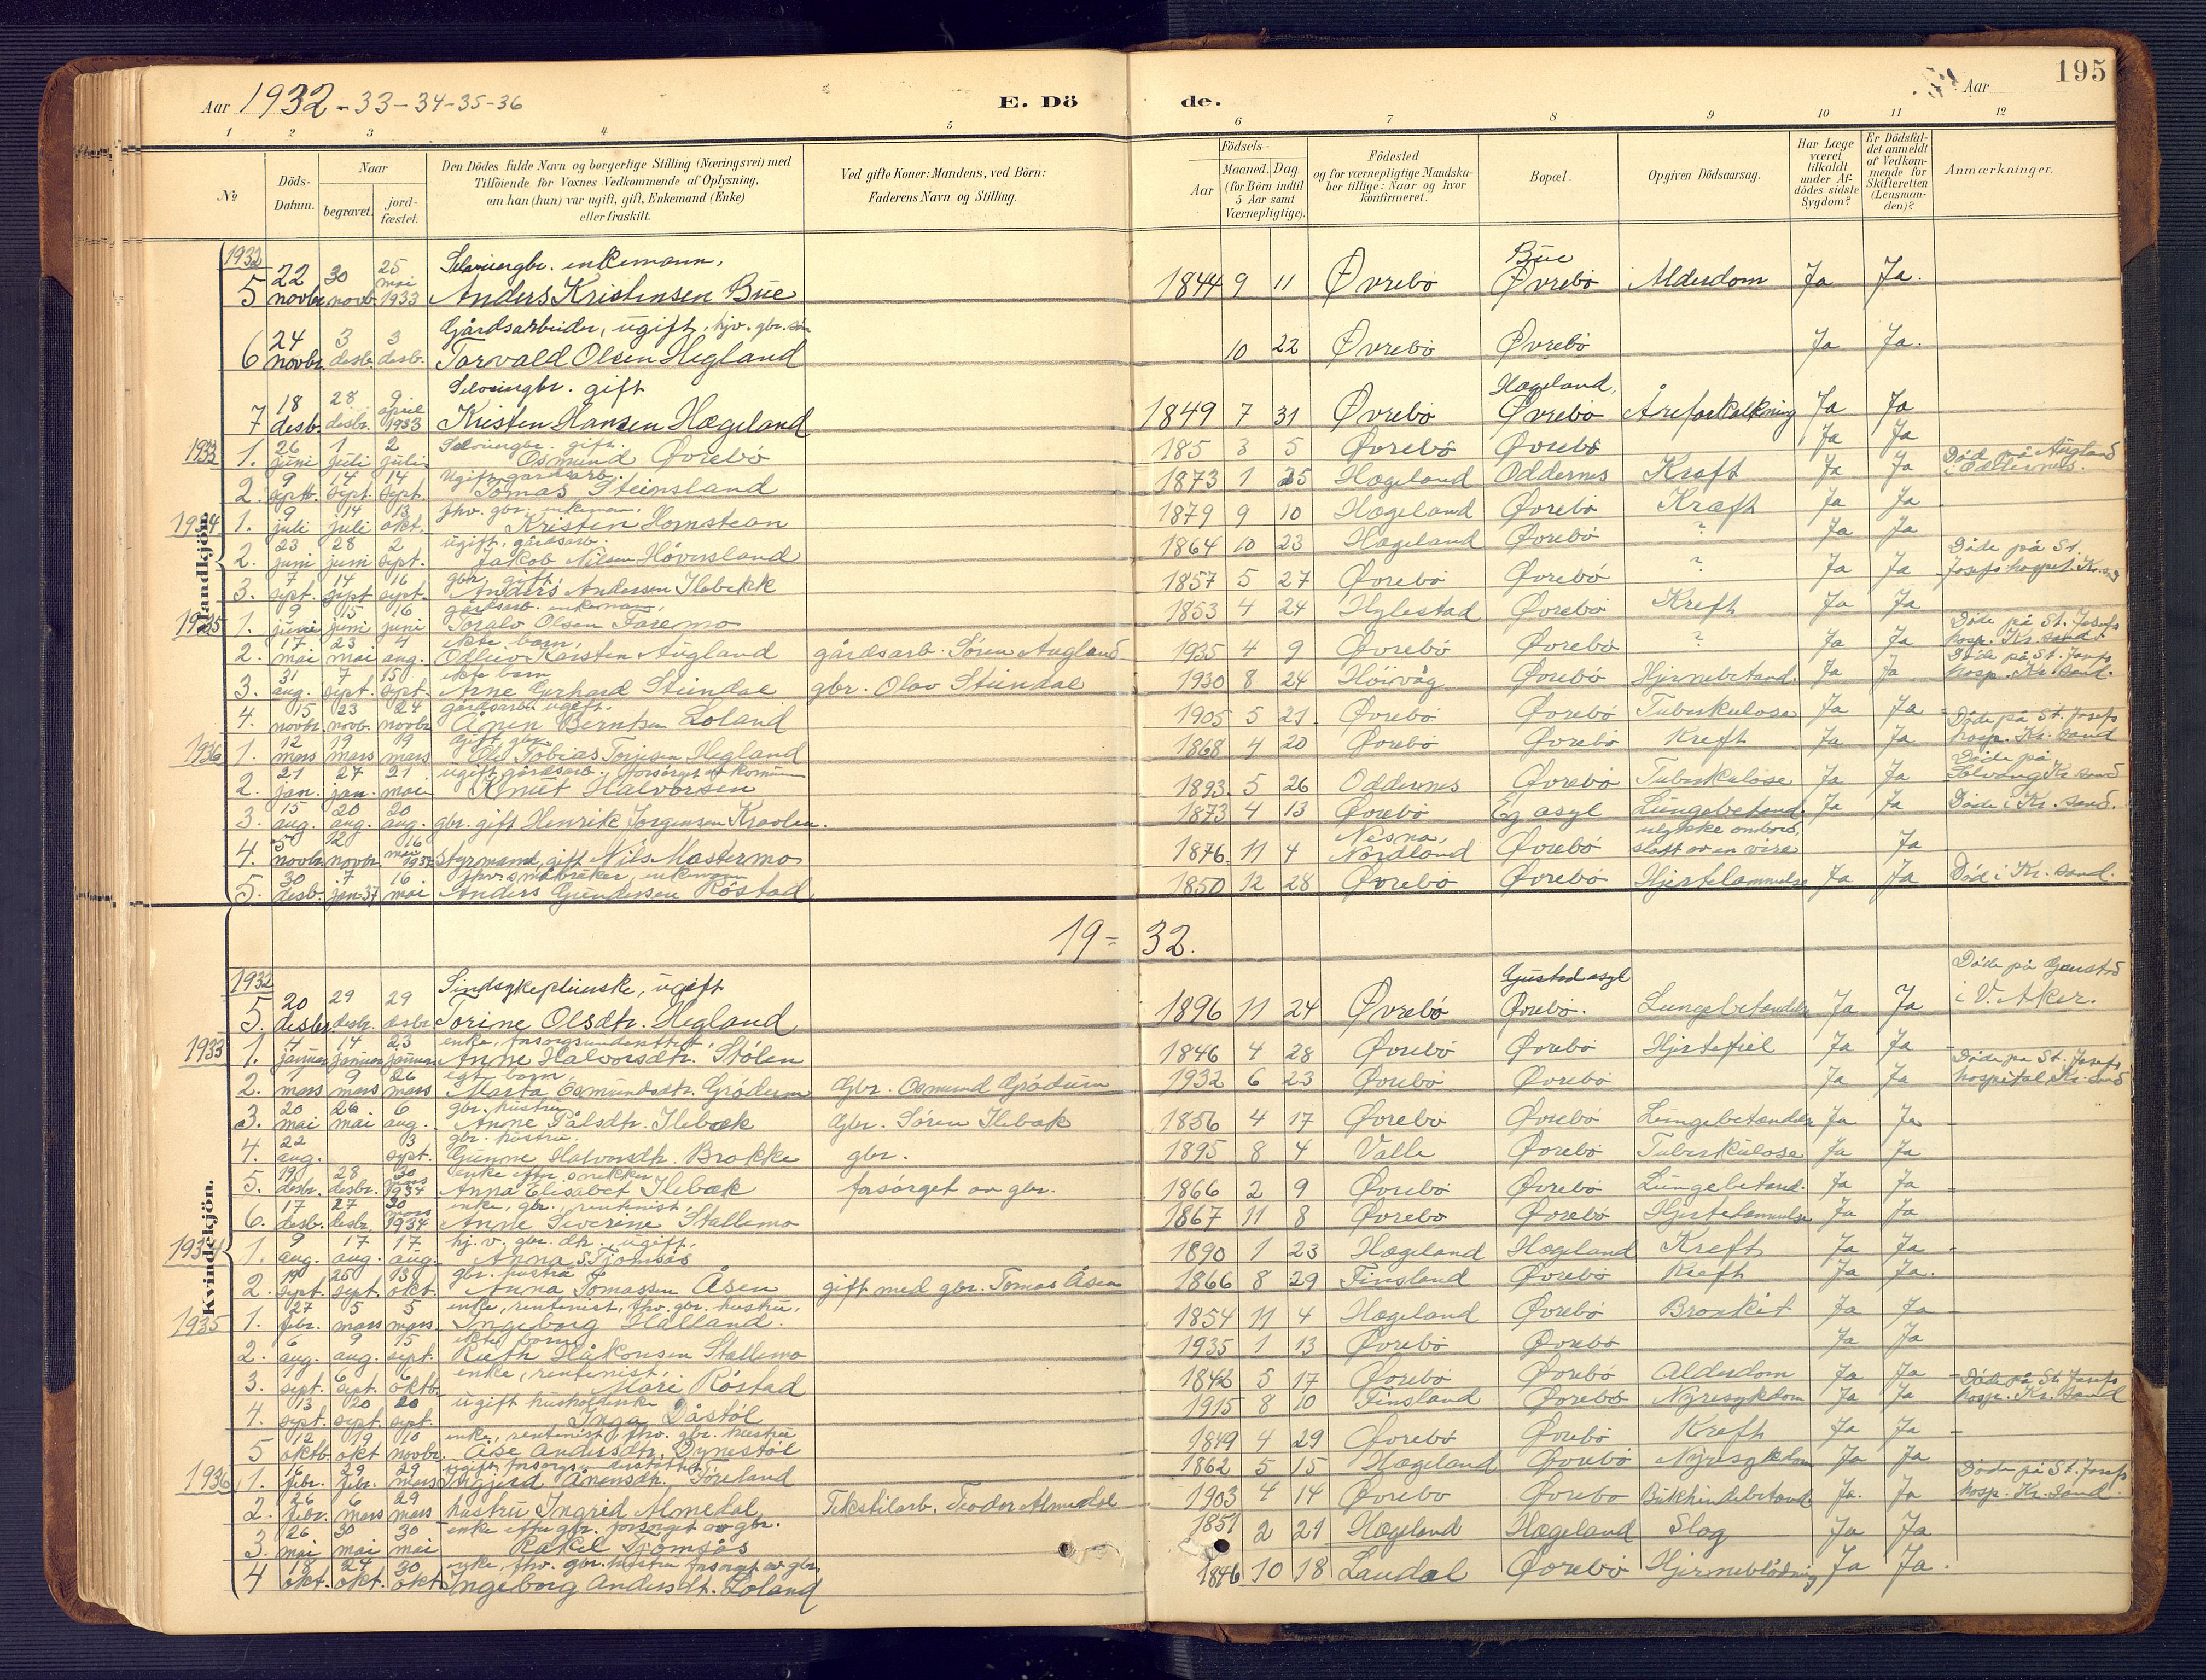 Aar 1932-33-34-35-36 E. Dö de. Aar 195
1 2 3 4 5 6 7 8 9 10 11 12
No Döds-Datum. Naar begravet. jordfæstet. Den Dödes fulde Navn og borgerlige Stilling (Næringsvei) med Tilföiende for Voxnes Vedkommende af Oplysning, om han (hun) var ugift, gift, Enkemand (Enke) eller fraskilt. Ved gifte Koner: Mandens, ved Börn: Faderens Navn og Stilling. Födsels- Aar Maaned. Dag. (for Börn indtil 5 Aar samt Værnepligtige). Födested og for værnepligtige Mandskaber tillige: Naar og hvor konfirmeret. Bopæl. Opgiven Dödsaarsag. Har Læge været tilkaldt under Afdödes sidste Sygdom? Er Dödsfaldet anmeldt af Vedkommende for Skifteretten (Lensmanden)? Anmærkninger.
Mandkjön.
1932
5 22 novbr. 30 novb. 25 mai 1933 enkemann, Anders Kristensen Bue 1844 9 11 Øvrebö Bue Øvrebö Alderdom Ja Ja.
6 24 novbr. 3 desbr. 3 desbr. Gårdsarbeider, ugift, hjv. gbr. sön Torvald Olsen Hegland 10 22 Øvrebö Øvrebö Ja Ja.
7 18 desb. 28 desbr. 9 april 1933 gift Kristen Hansen Hægeland 1849 7 31 Øvrebö Hægeland, Øvrebö Åreforkalkning Ja Ja
1933 1. 26 juni 1 juli 2 juli gift. Osmund Øvrebö 185 3 5 Øvrebö Øvrebö Ja Ja
2. 9 septb. 14 sept. 14 sept. Ugift gårdsarb. Tomas Steinsland 1873 1 25 Hægeland Oddernes Kreft Ja Ja Död på Augland i Oddernes.
1934 1. 9 juli 14 juli 13 okt. fhv. gbr. enkemann, Kristen Homstean 1879 9 10 Hægeland Øvrebö Kræft Ja Ja
2. 23 juni 28 juni 2 sept. ugift, gårdsarb. Jakob Nilsen Hövesland 1864 10 23 Hægeland Øvrebö ? Ja Ja
3. 7 sept. 14 sept. 16 sept. gbr, gift Anders Andersen Ilebekk 1857 5 27 Øvrebö Øvrebö ? Ja Ja Döde på St. Josefs hospit. Kr.sand
1935 1. 9 juni 15 juni 16 juni gårdsarb. enkemann, Toralv Olsen Faremo 1853 4 24 Hylestad Øvrebö Kreft Ja Ja
2. 17 mai 23 mai 4 aug. ekte barn, Odleiv Karsten Augland gårdsarb. Sören Augland 1935 4 9 Øvrebö Øvrebö ? Ja Ja Döde på St. Josefs hosp. Kr. sand.
3. 31 aug. 7 sept. 15 sept. ekte barn Arne Gerhard Stendal gbr. Olav Stendal 1930 8 24 Höivåg Øvrebö Hjernebetend. Ja Ja Döde på St. Josefs hosp. Kr. sand.
4. 15 novbr. 23 novb. 24 novbr. gårdsarb. ugift. Ånen Berntsen Loland 1905 5 21 Øvrebö Øvrebö Tuberkulose Ja Ja
1936 1. 12 mars 19 mars 19 mars Ugift gbr. Ole Tobias Torjesen Hegland 1868 4 20 Øvrebö Øvrebö Kreft Ja Ja Döde på St. Josefs hosp. Kr. sand
2. 21 jan. 27 jan. 21 mai ugift gårdsarb. forsörget av komun Knut Halvorsen 1893 5 26 Oddernes Øvrebö Tuberkulose Ja Ja Döde på Solvang Kr. sand
3. 15 aug. 20 aug. 20 aug. gbr. gift Henrik Jorgensen Kravlen. 1873 4 13 Øvrebö Eg asyl Lungebetend. Ja Ja Döde i Kr. sand.
4. 5 novbr. 12 novbr. 16 mai 1937 styrmand, gift Nils Mostermo 1876 11 4 Nesna, Nordland Øvrebö ulykke ombord, slått av en vire Ja
5. 30 desb. 7 jan. 37 16 mai fhv. småbruker, enkemann Anders Gundersen Röstad 1850 12 28 Øvrebö Øvrebö Hjertelammelse Ja Ja Död i Kr. sand.
19- 32.
Kvindekjön.
1932
5. 20 desbr. 29 desbr. 29 desbr. Sindsykepleierske, ugift Torine Olsdtr. Hegland 1896 11 24 Øvrebö Gaustad asyl Øvrebö. Lungebetendelse Ja Ja Döde på Gaustad i V. Aker.
1933 1. 4 januar 14 januar 23 januar enke, forsorgsunderstöttet, Anne Halvorsdtr. Stölen 1846 4 28 Øvrebö Øvrebö Hjertefeil Ja Ja
2. 1 mars 9 mars 26 mars egt. barn, Marta Osmundsdtr. Grödum Gbr. Osmund Grödum 1932 6 23 Øvrebö Øvrebö Ja Ja Döde på St. Josefs hospital, Kr. sand
3. 20 mai 26 mai 6 aug. gbr. hustru Anne Pålsdtr. Ilebæk Gbr. Sören Ilebæk 1856 4 17 Øvrebö Øvrebö Lungebetendelse Ja Ja
4. 22 aug. 3 sept. gbr. hustru. Gunne Halvorsdtr. Brokke gbr. 1895 8 4 Valle Øvrebö Tuberkulose Ja Ja
5. 19 desbr. 28 desbr. 30 mars 1934 enke efter snekker Anna Elisabet Ilebæk forsörget av gbr. 1866 2 9 Øvrebö Øvrebö Lungebetend. Ja Ja
6. 17 desb. 27 desbr. 30 mars 1934 enke, gbr. rentenist, Anne Severine Stallemo 1867 11 8 Øvrebö Øvrebö Hjertelammelse Ja Ja
1934 1. 9 aug. 17 aug. 17 aug. hj. v. gbr. dtr. ugift, Anna S. Tjomsås 1890 1 23 Hægeland Hægeland Kreft Ja Ja
2. 19 sept. 25 sept. 13 okt. gbr. hustru Anna Tomassen Åsen gift med gbr. Tomas Åsen 1866 8 29 Finsland Øvrebö Kreft Ja Ja.
1935 1. 27 febr. 5 mars 5 mars. enke, rentenist, fhv. gbr. hustru, Ingeborg Halland. 1854 11 4 Hægeland Øvrebö Bronkit Ja Ja
2. 6 aug. 9 aug. 15 sept. ekte barn Ruth Håkonsen Stallemo 1935 1 13 Øvrebö Øvrebö Ja Ja
3. sept. 6 sept. 6 oktb. enke, rentenist, Mari Röstad 1842 5 17 Øvrebö Øvrebö Alderdom Ja Ja
4. 13 sept. 20 sept. 20 sept. ugift husholderske Inga Dåstöl 1915 8 10 Finsland Øvrebö Nyresykdom Ja Ja Döde på St. Josefs hosp. Kr. sand
5 12 oktb 19 okt 10 novbr. enke, rentenist, fhv. gbr. hustru Åse Andersdtr. Dynestöl 1849 4 29 Øvrebö Øvrebö Kreft Ja Ja
1936 1. febr. 29 febr. 29 mars ugift, forsorgsunderstöttet Ingjerd Ånensdtr. Föreland 1862 5 15 Hægeland Øvrebö Nyresykdom Ja Ja
2. 26 febr. 6 mars 29 mars hustru Ingrid Almedal Tekstilarb. Teodor Almedal 1903 4 14 Øvrebö Øvrebö Bukhindebetend. Ja. Ja Döde på St. Josefs hosp. Kr. sand.
3. 26 mai 30 mai 30 mai enke efter gbr. forsörget av gbr. Rakel Tjomsås 1851 2 21 Hægeland Hægeland Slag Ja Ja
4 18 okt. 24 okt. 30 okt. enke, fhv. gbr. hustru forsörget av gbr. Ingeborg Andersdt. Loland 1846 10 18 Laudal Øvrebö Hjerneblödning Ja Ja.